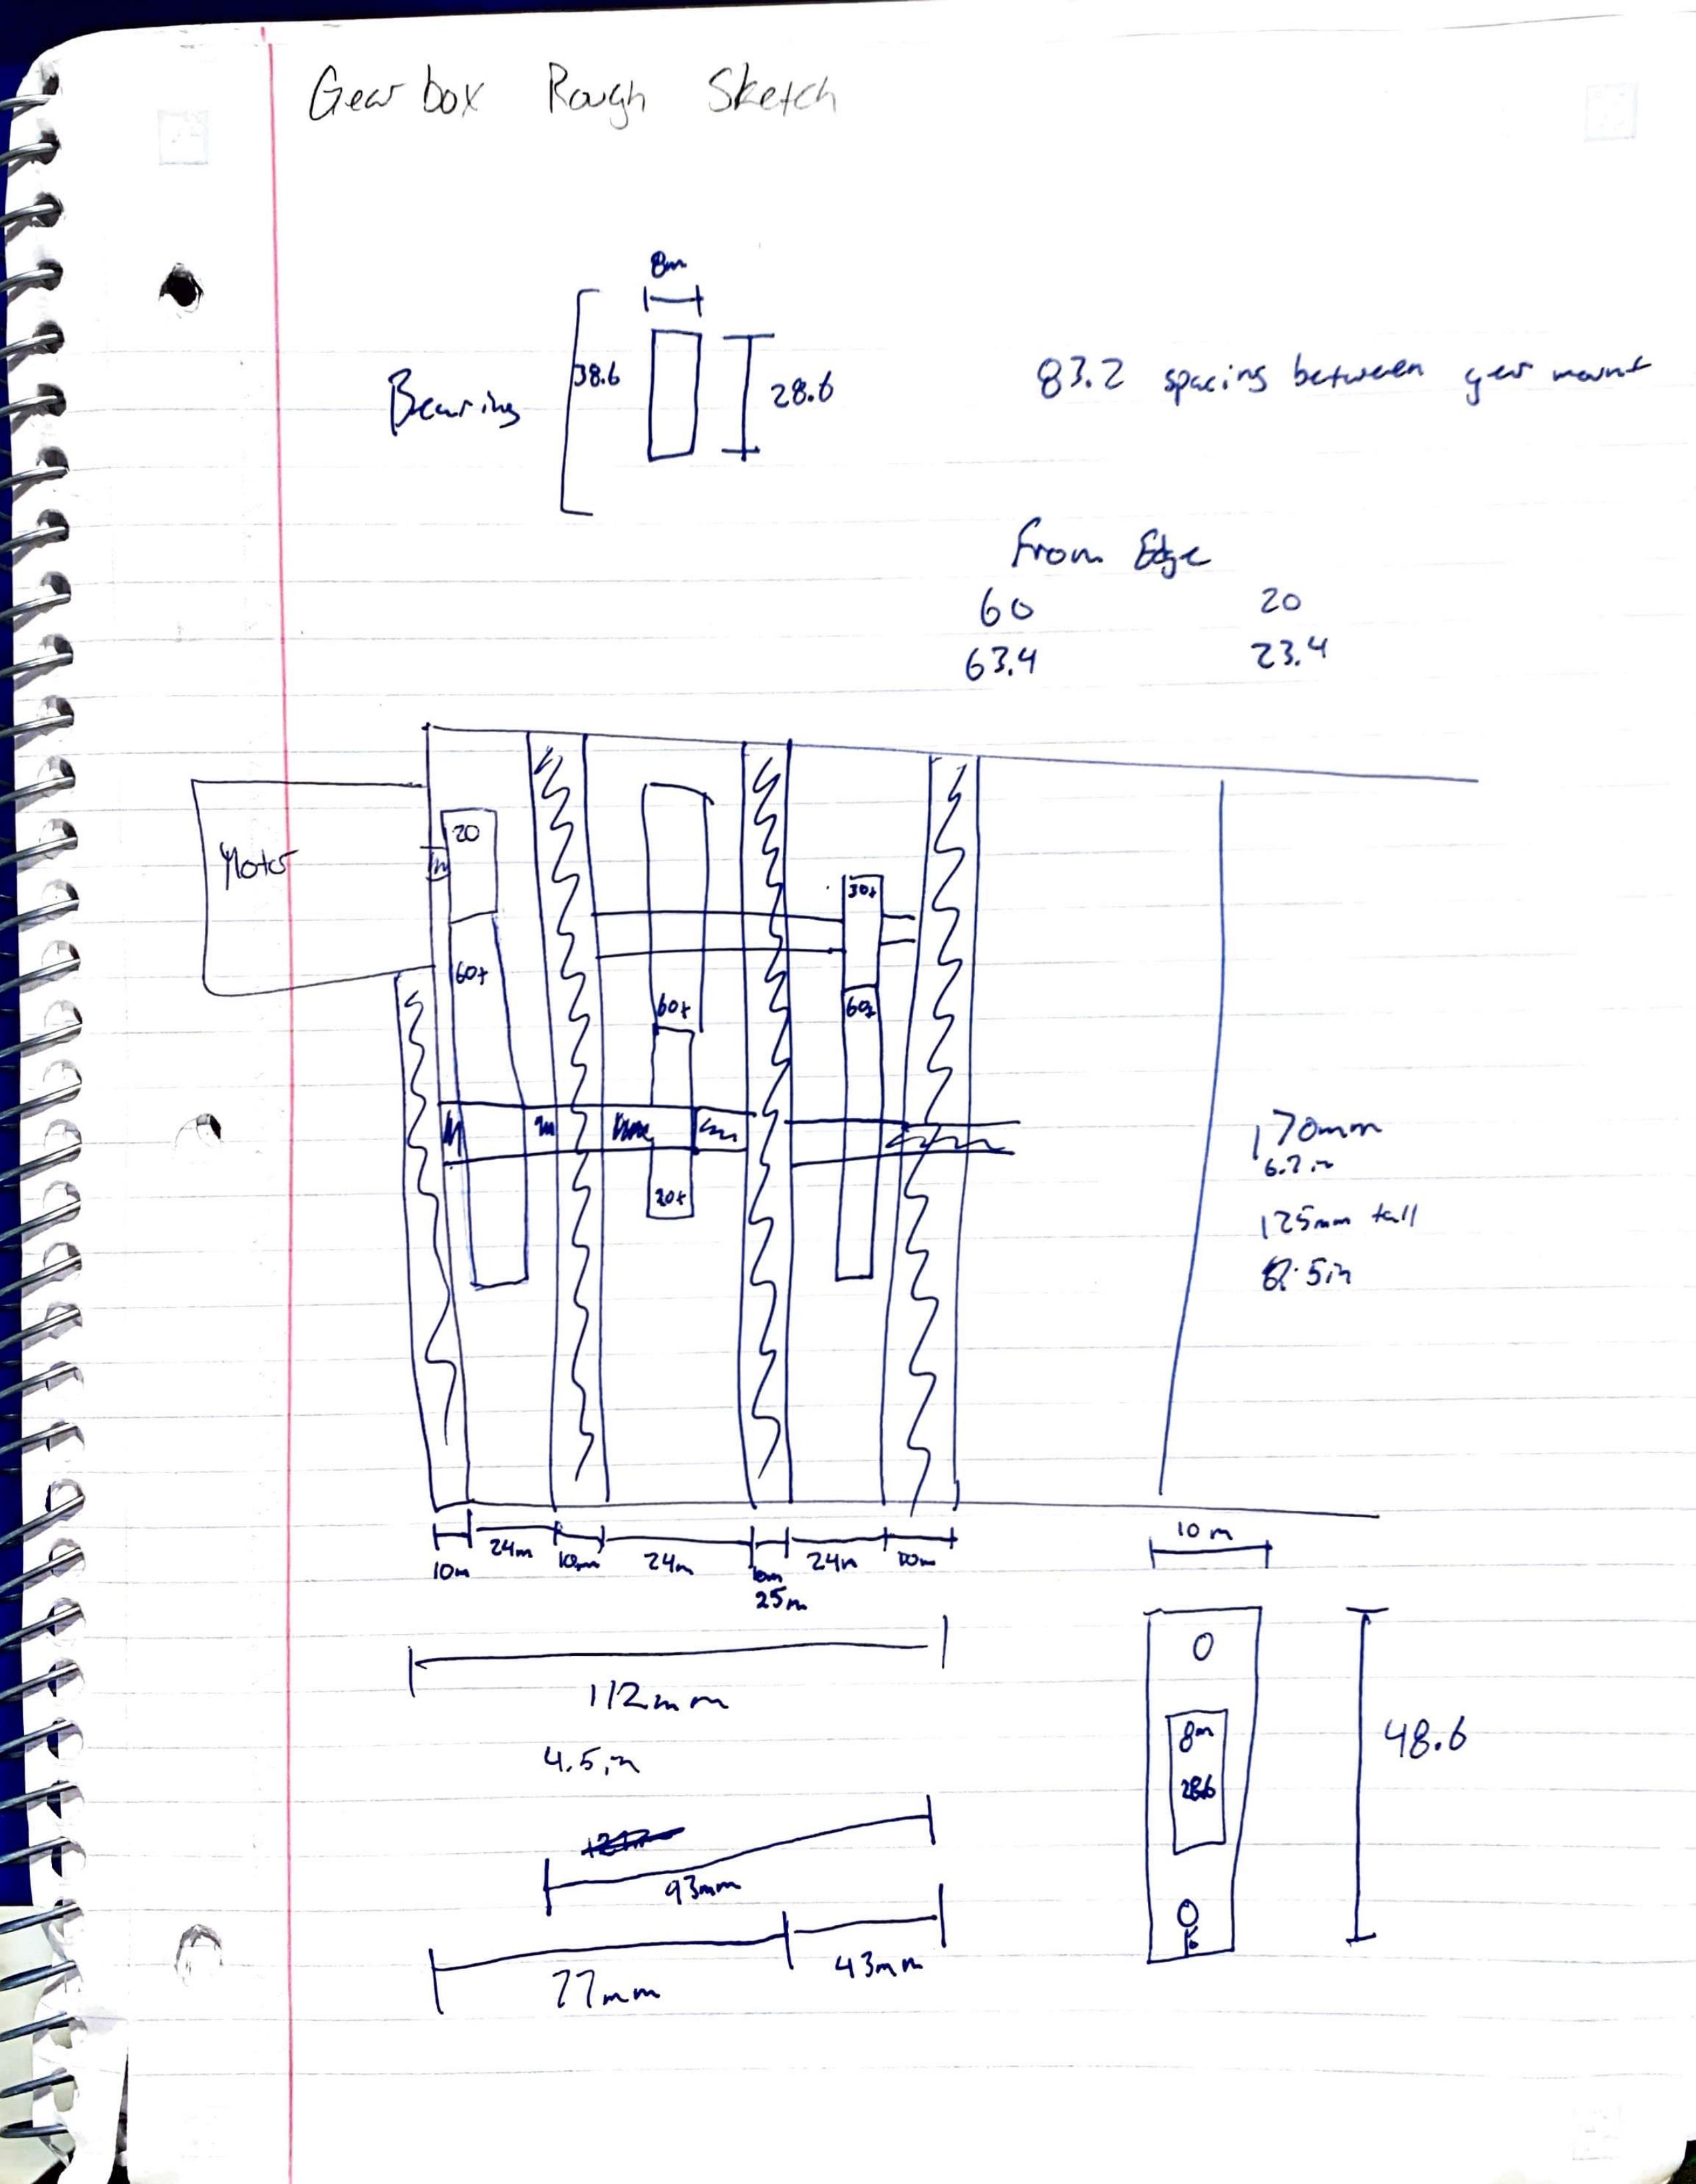 Gear box Rough Sketch
8m
Bearing
38.6
28.6
83.2 spacing between gear mount
From Edge
60 20
63.4 23.4
Motor
20
60t
60t
20t
30t
60t
170mm
125mm tall
10m 24m 10m 24m 10m 24m 10m
25m
112mm
4.5in
93mm
77mm 43mm
10m
8m
28.6
48.6